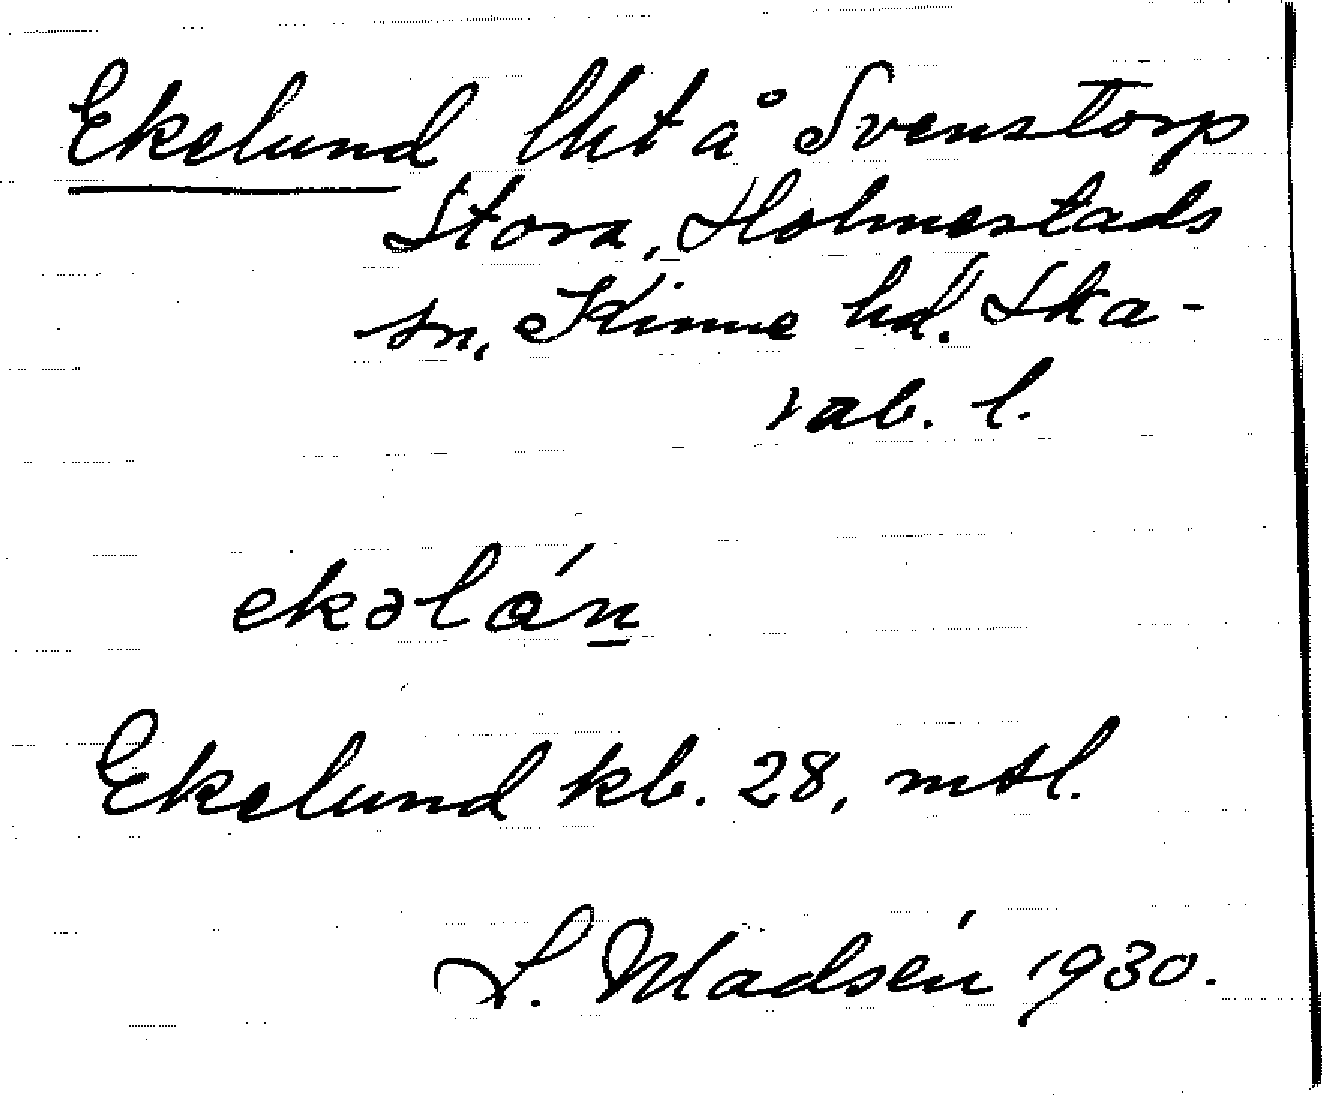 Ekelund lht å Svenstorp
Stora, Holmestads
sn, Kinne hd. Ska-
rab. l.
ekəlán
Ekelund kb. 28, mtl.
S. Madsén 1930.